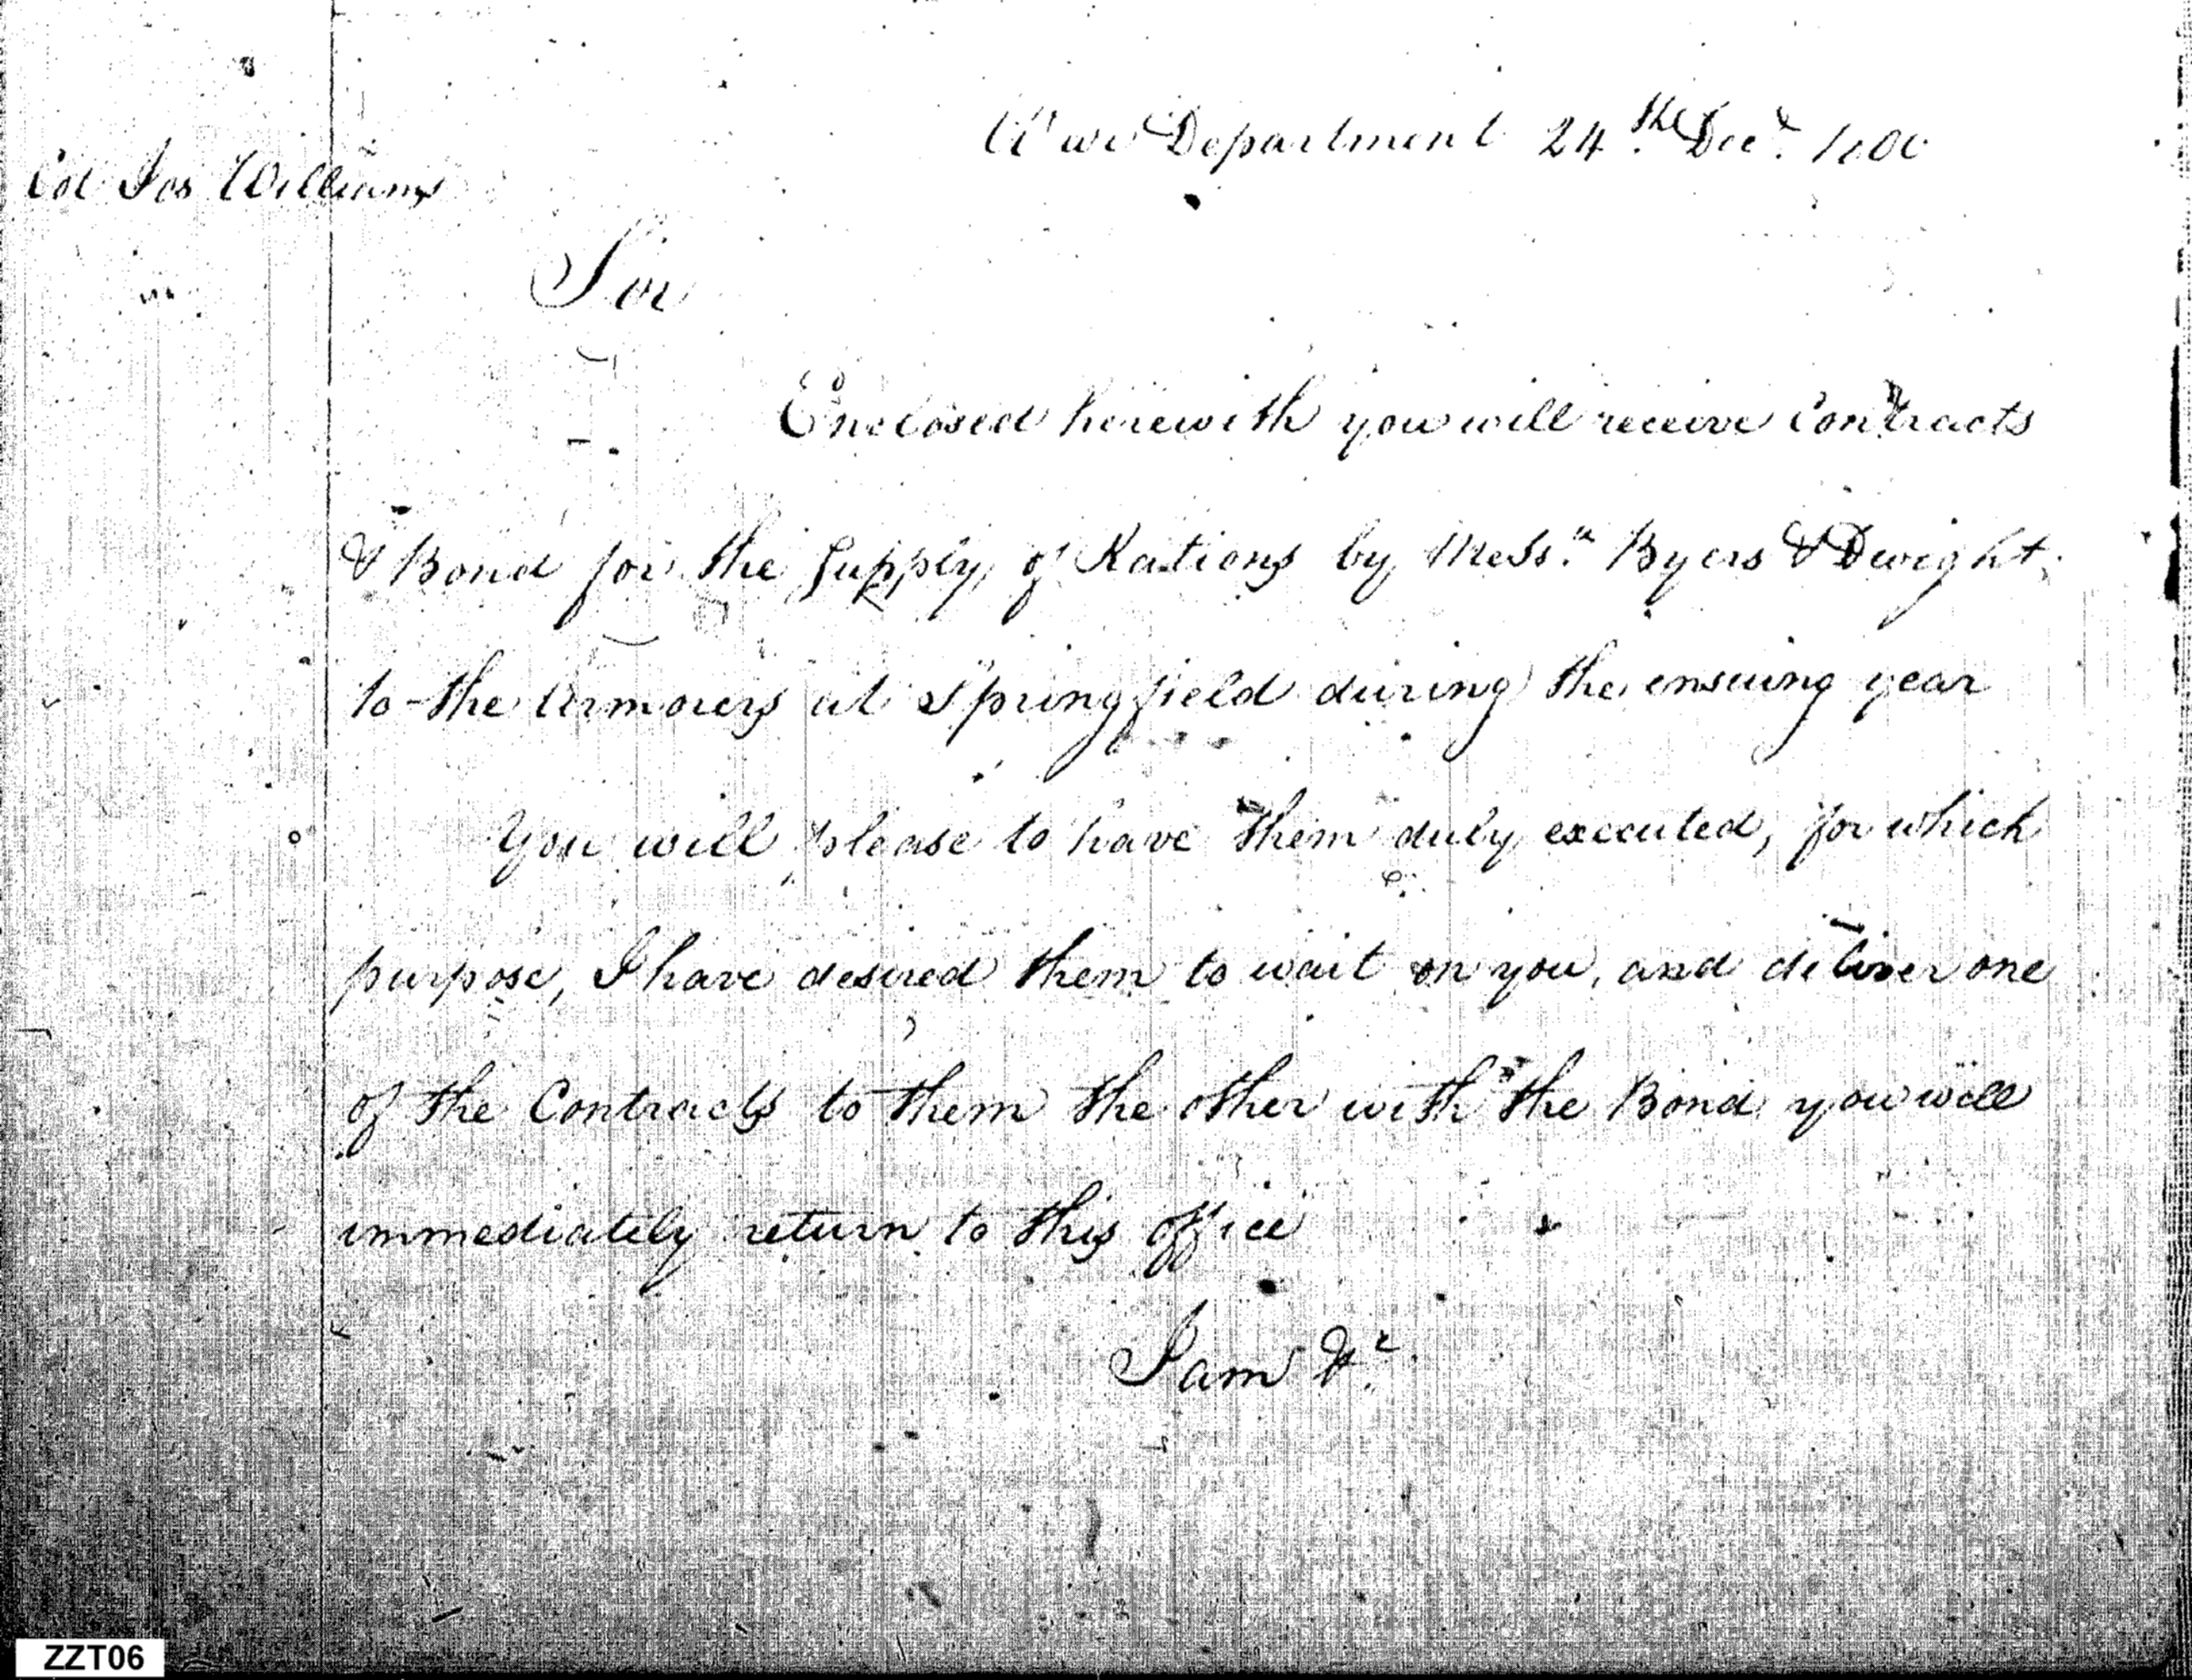 War Department 24th Decr. 1800
Col Jos Williams
Sir
Enclosed herewith you will receive Contracts
& Bond for the Supply of Rations by Messrs. Byers & Dwight
to the Armorers at Springfield during the ensuing year
You will please to have them duly executed, for which
purpose, I have desired them to wait on you, and deliver one
of the Contracts to them the other with the Bond you will
immediately return to this office
I am &c.
ZZT06